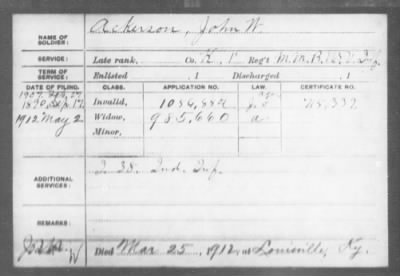 NAME OF SOLDIER: Ackerson, John W.
SERVICE: Late rank, Co. K, 1" Reg't M.M.B. U.S.V. Inf.
TERM OF SERVICE: Enlisted , 1 Discharged , 1
DATE OF FILING. CLASS. APPLICATION NO. LAW. CERTIFICATE NO.
1907
1890 Invalid, 1056,882
1912 May 2 Widow, 985,660 a
Minor,
ADDITIONAL SERVICES: I 38. Ind. Inf.
REMARKS:
Died Mar 25, 1912, at Louisville, Ky.